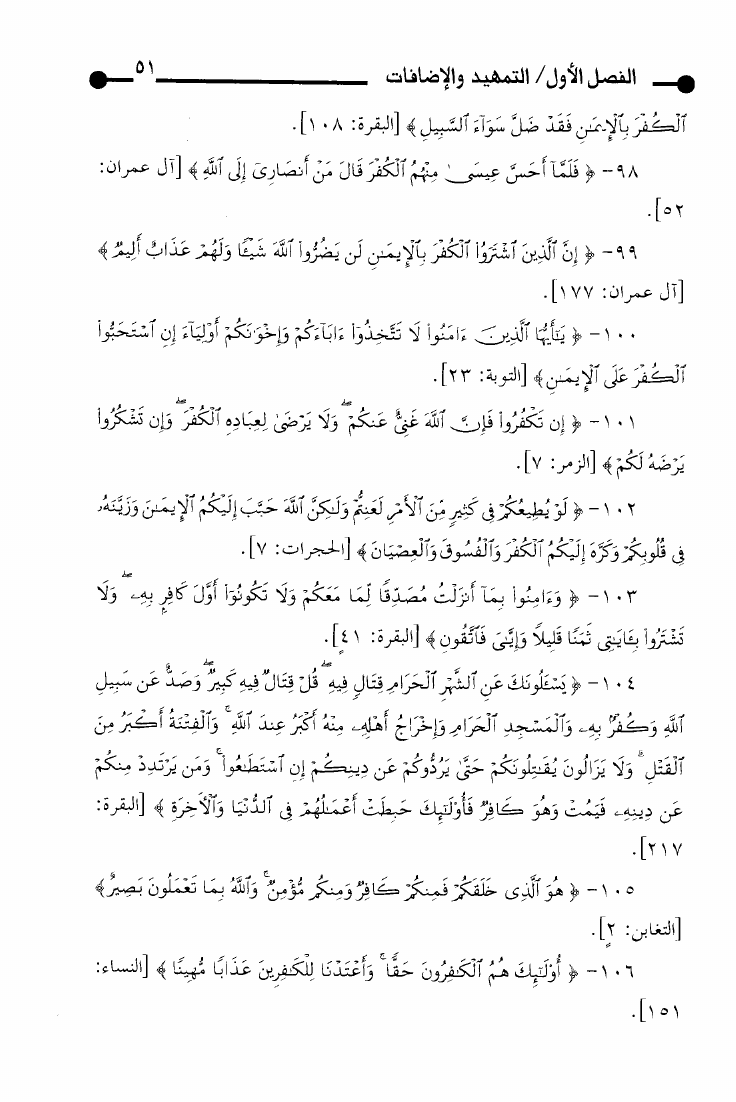 الفصل الأول/ التمهيد والإضافات ٥١
ٱلْكُفْرَ بِٱلْإِيمَٰنِ فَقَدْ ضَلَّ سَوَآءَ ٱلسَّبِيلِ ﴾ [البقرة: ١٠٨].
٩٨- ﴿ فَلَمَّآ أَحَسَّ عِيسَىٰ مِنْهُمُ ٱلْكُفْرَ قَالَ مَنْ أَنصَارِىٓ إِلَى ٱللَّهِ ﴾ [آل عمران:
٥٢].
٩٩- ﴿ إِنَّ ٱلَّذِينَ ٱشْتَرَوُا۟ ٱلْكُفْرَ بِٱلْإِيمَٰنِ لَن يَضُرُّوا۟ ٱللَّهَ شَيْـًٔا وَلَهُمْ عَذَابٌ أَلِيمٌ ﴾
[آل عمران: ١٧٧].
١٠٠- ﴿ يَٰٓأَيُّهَا ٱلَّذِينَ ءَامَنُوا۟ لَا تَتَّخِذُوٓا۟ ءَابَآءَكُمْ وَإِخْوَٰنَكُمْ أَوْلِيَآءَ إِنِ ٱسْتَحَبُّوا۟
ٱلْكُفْرَ عَلَى ٱلْإِيمَٰنِ ﴾ [التوبة: ٢٣].
١٠١- ﴿ إِن تَكْفُرُوا۟ فَإِنَّ ٱللَّهَ غَنِىٌّ عَنكُمْ ۖ وَلَا يَرْضَىٰ لِعِبَادِهِ ٱلْكُفْرَ ۖ وَإِن تَشْكُرُوا۟
يَرْضَهُ لَكُمْ ﴾ [الزمر: ٧].
١٠٢- ﴿ لَوْ يُطِيعُكُمْ فِى كَثِيرٍ مِّنَ ٱلْأَمْرِ لَعَنِتُّمْ وَلَٰكِنَّ ٱللَّهَ حَبَّبَ إِلَيْكُمُ ٱلْإِيمَٰنَ وَزَيَّنَهُۥ
فِى قُلُوبِكُمْ وَكَرَّهَ إِلَيْكُمُ ٱلْكُفْرَ وَٱلْفُسُوقَ وَٱلْعِصْيَانَ ﴾ [الحجرات: ٧].
١٠٣- ﴿ وَءَامِنُوا۟ بِمَآ أَنزَلْتُ مُصَدِّقًا لِّمَا مَعَكُمْ وَلَا تَكُونُوٓا۟ أَوَّلَ كَافِرٍۭ بِهِۦ ۖ وَلَا
تَشْتَرُوا۟ بِـَٔايَٰتِى ثَمَنًا قَلِيلًا وَإِيَّٰىَ فَٱتَّقُونِ ﴾ [البقرة: ٤١].
١٠٤- ﴿ يَسْـَٔلُونَكَ عَنِ ٱلشَّهْرِ ٱلْحَرَامِ قِتَالٍ فِيهِ ۖ قُلْ قِتَالٌ فِيهِ كَبِيرٌ ۖ وَصَدٌّ عَن سَبِيلِ
ٱللَّهِ وَكُفْرٌۢ بِهِۦ وَٱلْمَسْجِدِ ٱلْحَرَامِ وَإِخْرَاجُ أَهْلِهِۦ مِنْهُ أَكْبَرُ عِندَ ٱللَّهِ ۚ وَٱلْفِتْنَةُ أَكْبَرُ مِنَ
ٱلْقَتْلِ ۗ وَلَا يَزَالُونَ يُقَٰتِلُونَكُمْ حَتَّىٰ يَرُدُّوكُمْ عَن دِينِكُمْ إِنِ ٱسْتَطَٰعُوا۟ ۚ وَمَن يَرْتَدِدْ مِنكُمْ
عَن دِينِهِۦ فَيَمُتْ وَهُوَ كَافِرٌ فَأُو۟لَٰٓئِكَ حَبِطَتْ أَعْمَٰلُهُمْ فِى ٱلدُّنْيَا وَٱلْأَخِرَةِ ﴾ [البقرة:
٢١٧].
١٠٥- ﴿ هُوَ ٱلَّذِى خَلَقَكُمْ فَمِنكُمْ كَافِرٌ وَمِنكُم مُّؤْمِنٌ ۚ وَٱللَّهُ بِمَا تَعْمَلُونَ بَصِيرٌ ﴾
[التغابن: ٢].
١٠٦- ﴿ أُو۟لَٰٓئِكَ هُمُ ٱلْكَٰفِرُونَ حَقًّا ۚ وَأَعْتَدْنَا لِلْكَٰفِرِينَ عَذَابًا مُّهِينًا ﴾ [النساء:
١٥١].